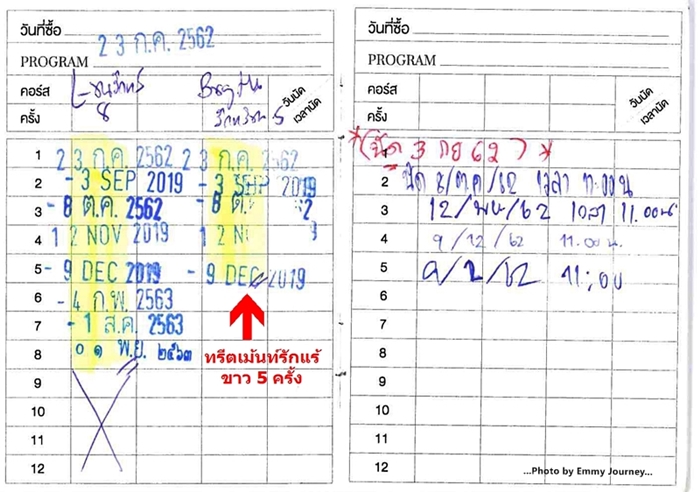 วันที่ซื้อ
2 3 ก.ค. 2562
PROGRAM
คอร์ส
8
ครั้ง
5
วันนัด
เวลานัด
1 2 3 ก.ค. 2562 2 3 ก.ค. 2562
2 - 3 SEP 2019 - 3 SEP 2019
3 - 8 ต.ค. 2562 - 8 ต. 62
4 1 2 NOV 2019 1 2 N 9
5 - 9 DEC 2019 - 9 DEC 2019
6 - 4 ก.พ. 2563
7 - 1 ส.ค. 2563
8 ๐ ๑ พ.ย. ๒๕๖๓
9
10
11
12
ทรีตเม้นท์รักแร้
ขาว 5 ครั้ง
วันที่ซื้อ
PROGRAM
คอร์ส
ครั้ง
วันนัด
เวลานัด
1 *(นัด 3 กย 62)*
2 นัด 8/ตค/62 เวลา 11.00น
3 12/พย/62 เวลา 11.00น
4 9/12/62 11.00น.
5 9/2/62 11:00
6
7
8
9
10
11
12
...Photo by Emmy Journey...